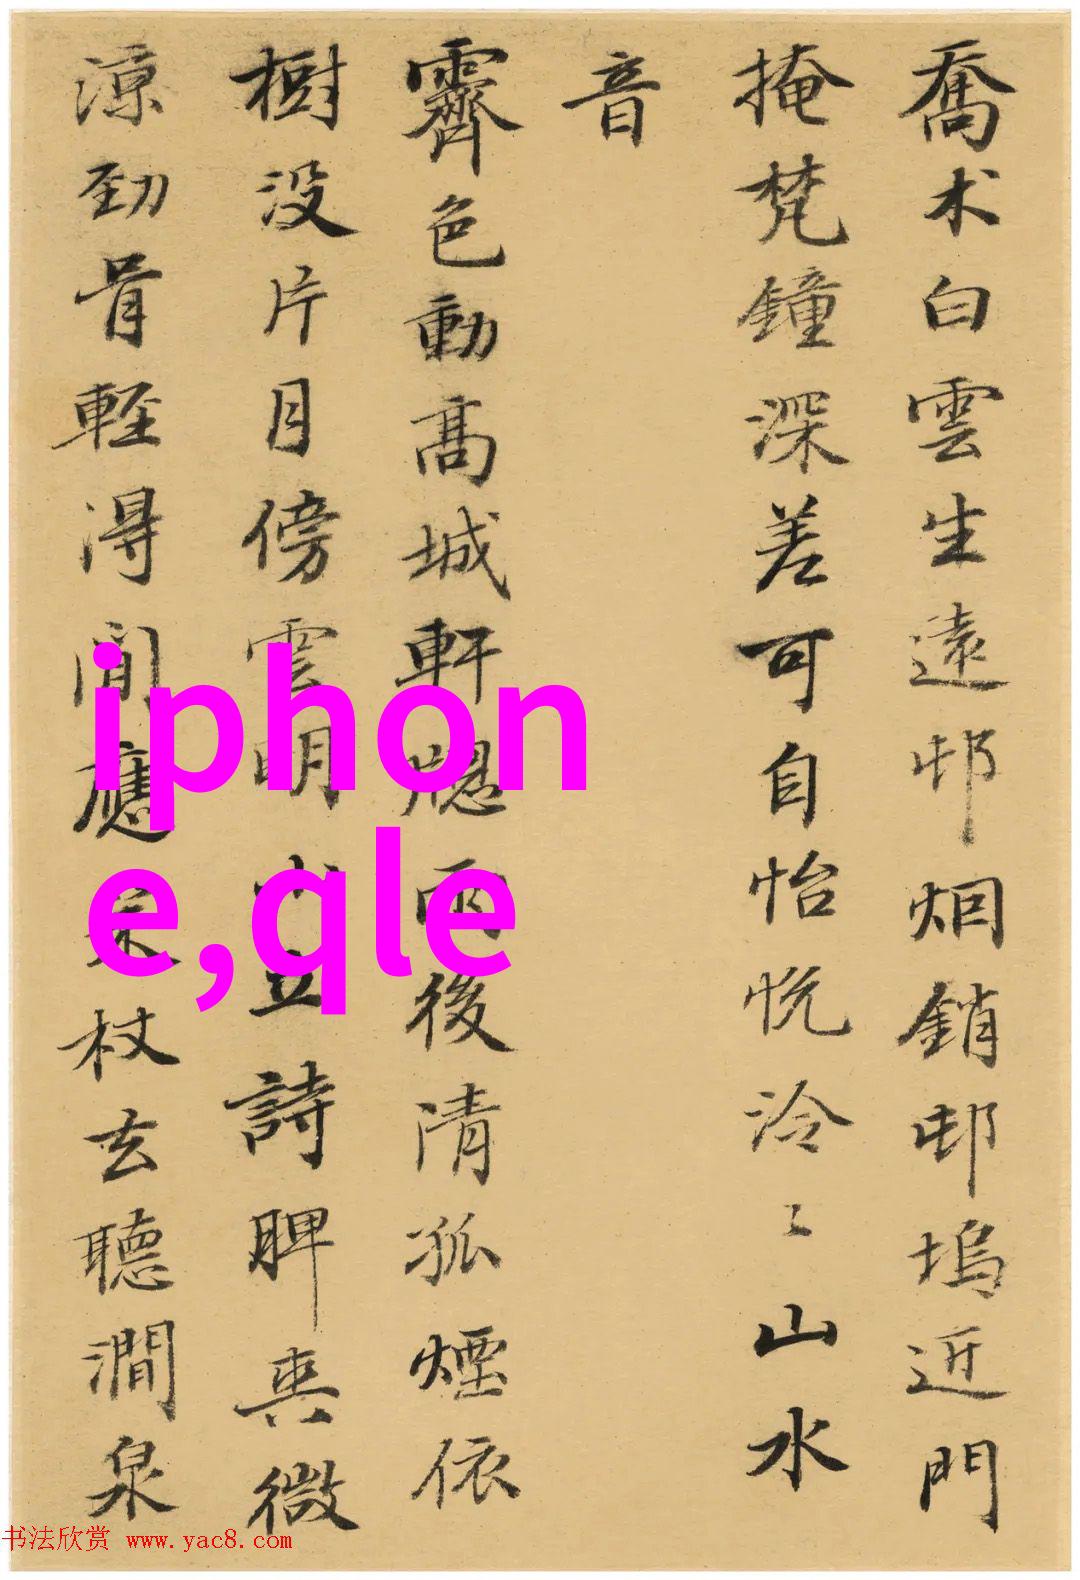 喬木白雲生遠邨烟銷邨塢近門
掩梵鐘深差可自怡悦泠〻山水
音
霽色動高城軒牕雨後清孤煙依
樹没片月傍雲明立詩脾爽微
涼勁骨輕得閒應杖去聽澗泉
iphon
e,qle
书法欣赏 www.yac8.com